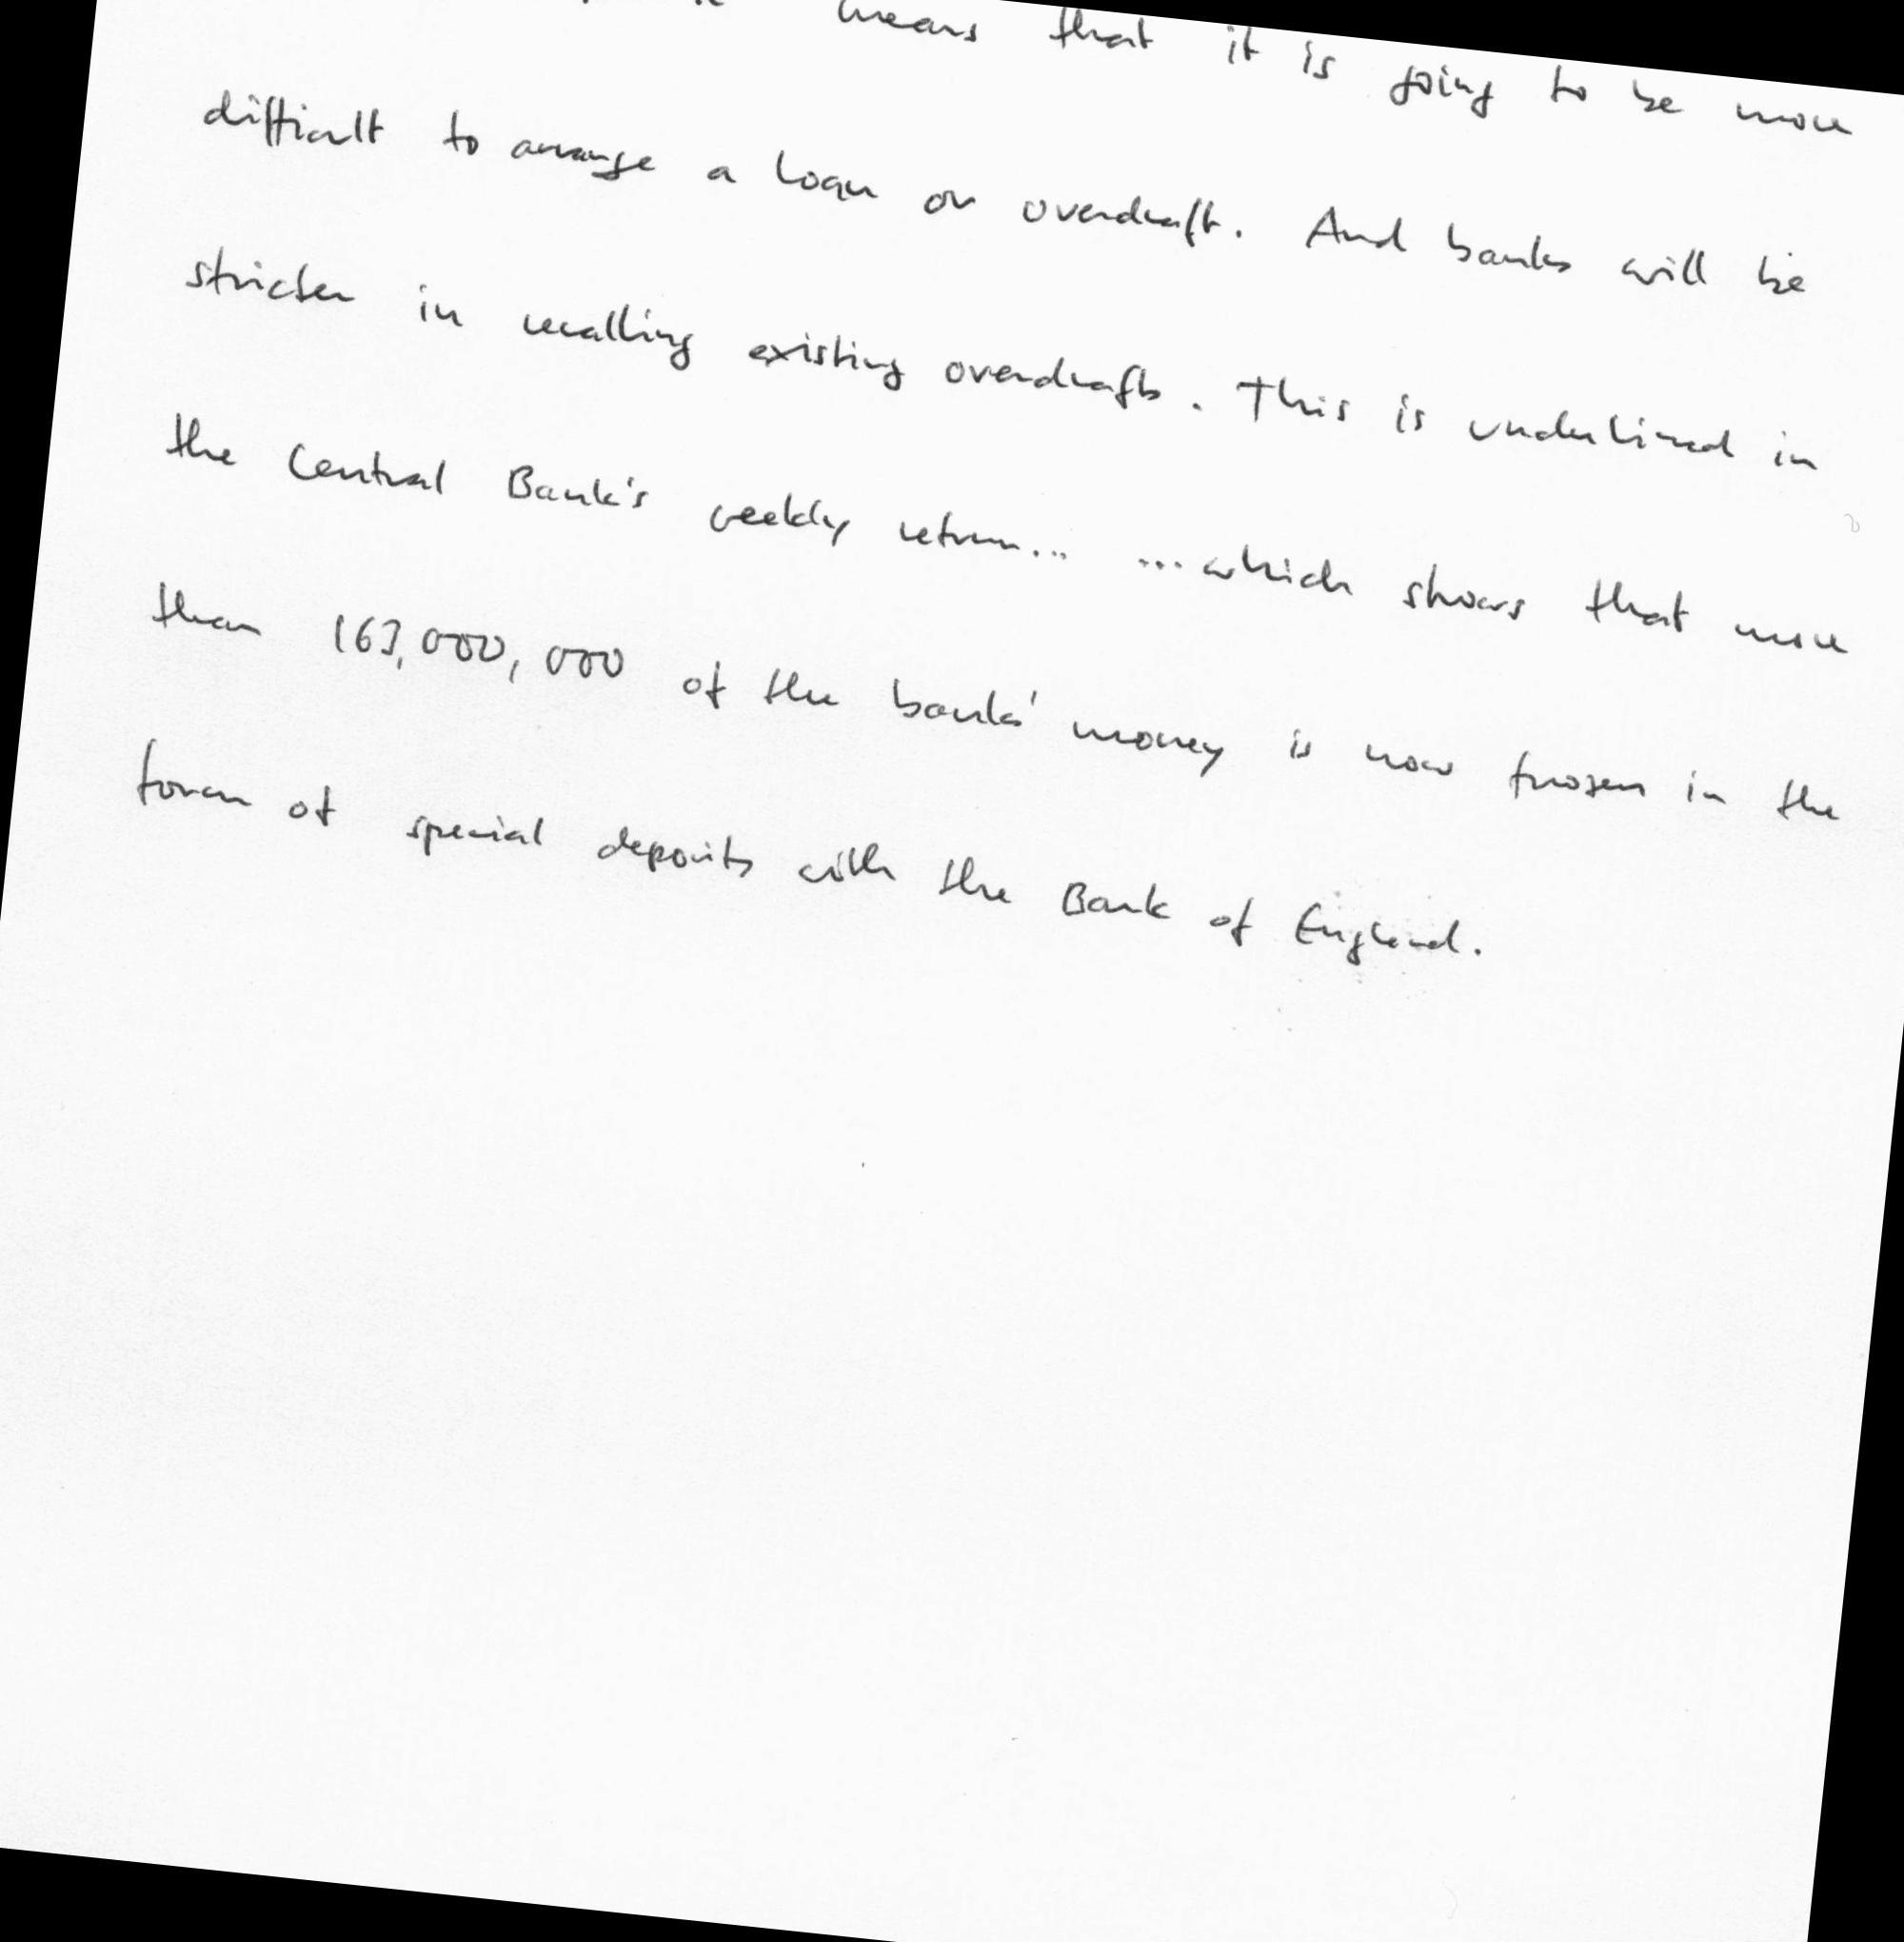 means that it is going to be more
difficult to arrange a loan or overdraft. And banks will be
stricter in recalling existing overdrafts. This is underlined in
the Central Bank's weekly return... ...which shows that more
than 163,000,000 of the banks' money is now frozen in the
form of special deposits with the Bank of England.